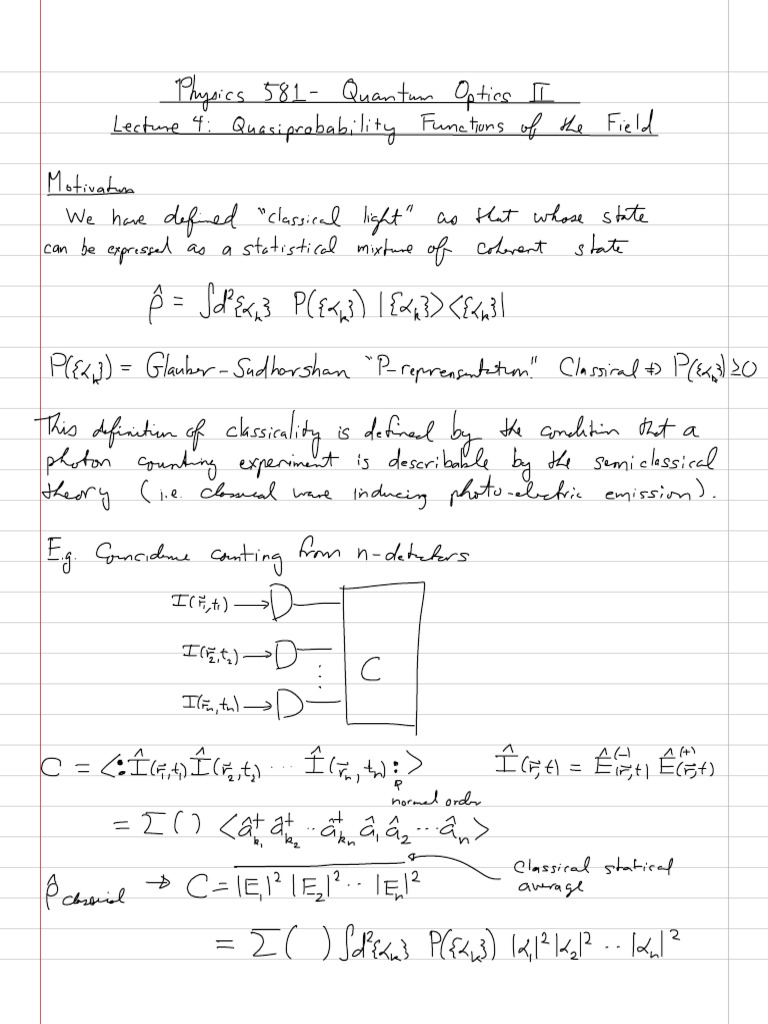 Physics 581 - Quantum Optics II
Lecture 4: Quasiprobability Functions of the Field
Motivation
We have defined "classical light" as that whose state
can be expressed as a statistical mixture of coherent state
ρ̂ = ∫d²{α_k} P({α_k}) |{α_k}><{α_k}|
P({α_k}) = Glauber-Sudharshan "P-reprensentation." Classical ⇔ P({α_k}) ≥ 0
This definition of classicality is defined by the condition that a
photon counting experiment is describable by the semiclassical
theory (i.e. classical wave inducing photo-electric emission).
E.g. Coincidence counting from n-detectors
I(r⃗₁,t₁)
I(r⃗₂,t₂)
C
I(r⃗ₙ,tₙ)
C = <:Î(r⃗₁,t₁) Î(r⃗₂,t₂) ... Î(r⃗ₙ,tₙ):> Î(r⃗,t) = Ê⁽⁻⁾(r⃗,t) Ê⁽⁺⁾(r⃗,t)
normal order
= Σ( ) <â†_k₁ â†_k₂ ... â†_kₙ â₁ â₂ ... âₙ>
ρ̂ classical ⇒ C = |E₁|² |E₂|² ... |Eₙ|² Classical statical
average
= Σ( ) ∫d²{α_k} P({α_k}) |α₁|² |α₂|² ... |αₙ|²